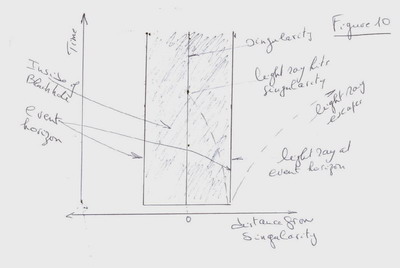 Figure 10
Time
singularity
Inside of
Black hole
light ray hits
singularity
light ray
escapes
event
horizon
light ray at
event horizon
0
distance from
singularity